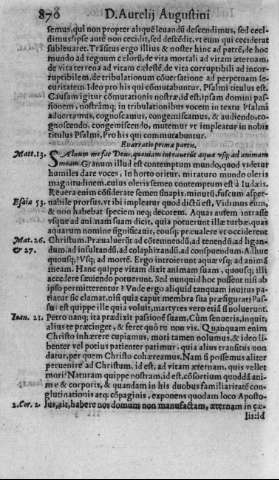 870 D. Aurelij Augustini
semus, qui non propter aliquẽ leuandũ descendimus, sed ceci-
dimus: ipse autẽ non cecidit, sed descẽdit, vt eum qui ceciderat
subleuaret. Trãsitus ergo illius & noster hinc ad patrẽ, de hoc
mundo ad regnum celorũ, de vita mortali ad vitam æternam,
de vita terrena ad vitam celestẽ, de vita corruptibili ad incor-
ruptibilem, de tribulationum cõuersatione ad perpetuam se-
curitatem. Ideo pro his qui cõmutabuntur. Psalmi titulus est.
Causam igitur cõmutationis nostræ, id est ipsam domini pas-
sionem, nostrãmq; in tribulationibus vocem in textu Psalmi
aduertamus, cognoscamus, congemiscamus, & audiendo, co-
gnoscendo, congemiscendo, mutemur vt impleatur in nobis
titulus Psalmi, Pro his qui commutabuntur.
Enarratio primæ partis.
Matt. 13. SAluum me fac Deus, quoniam introierunt aquæ vsq; ad animam
meam. Granum illud est contemptum modo, quod videtur
humiles dare voces, In horto oritur. miraturo mundo oleris
magnitudinem, cuius oleris semen contemptum est à Iudæis.
Reuera enim cõsiderate semen sinapis, minutũ, fuscum, asper-
Esaiæ 53. nabile prorsus, vt ibi impleatur quod dictũ est, Vidimus eum,
& non habebat speciem neq; decorem. Aquas autem intrasse
vsque ad animam suam
aquarum nomine significauit, eousq; præualere vt occiderent
Mat. 26. Christum. Præualuerũt ad contemnendũ, ad tenendũ, ad ligan-
& 27. dum, ad insultandũ, ad colaphizandũ, ad conspuendum. Adhuc
quousq;? Vsq; ad mortẽ. Ergo introierunt aquæ vsq; ad animã
meam. Hanc quippe vitam dixit animam suam, quousq; illi
accedere sæuiendo potuerunt. Sed nunquid hoc possent nisi ab
ipso permitterentur? Vnde ergo aliquid tanquam inuitus pa-
tiatur sic clamat, nisi quia caput membra sua præfigurat? Pas-
sus est quippe ille quia voluit, martyres vero etiã si noluerunt.
Ioan. 21. Petro nanq; ita prædixit passionẽ suam, Cum senueris, inquit,
alius te præcinget, & feret quò tu non vis. Quanquam enim
Christo inhærere cupiamus, mori tamen nolumus, & ideo li-
benter vel potius patienter patimur, quia alius transitus non
datur, per quem Christo cohæreamus. Nam si possemus aliter
peruenire ad Christum, id est, ad vitam æternam, quis vellet
mori? Naturam quippe nostram, id est, cõsortium quoddã ani-
mæ & corporis, & quandam in his duobus familiaritatẽ con-
glutinationis atq; cõpaginis, exponens quodam loco Aposto-
2. Cor. 2. lus, ait, habere nos domum non manufactam, æternam in cæ-